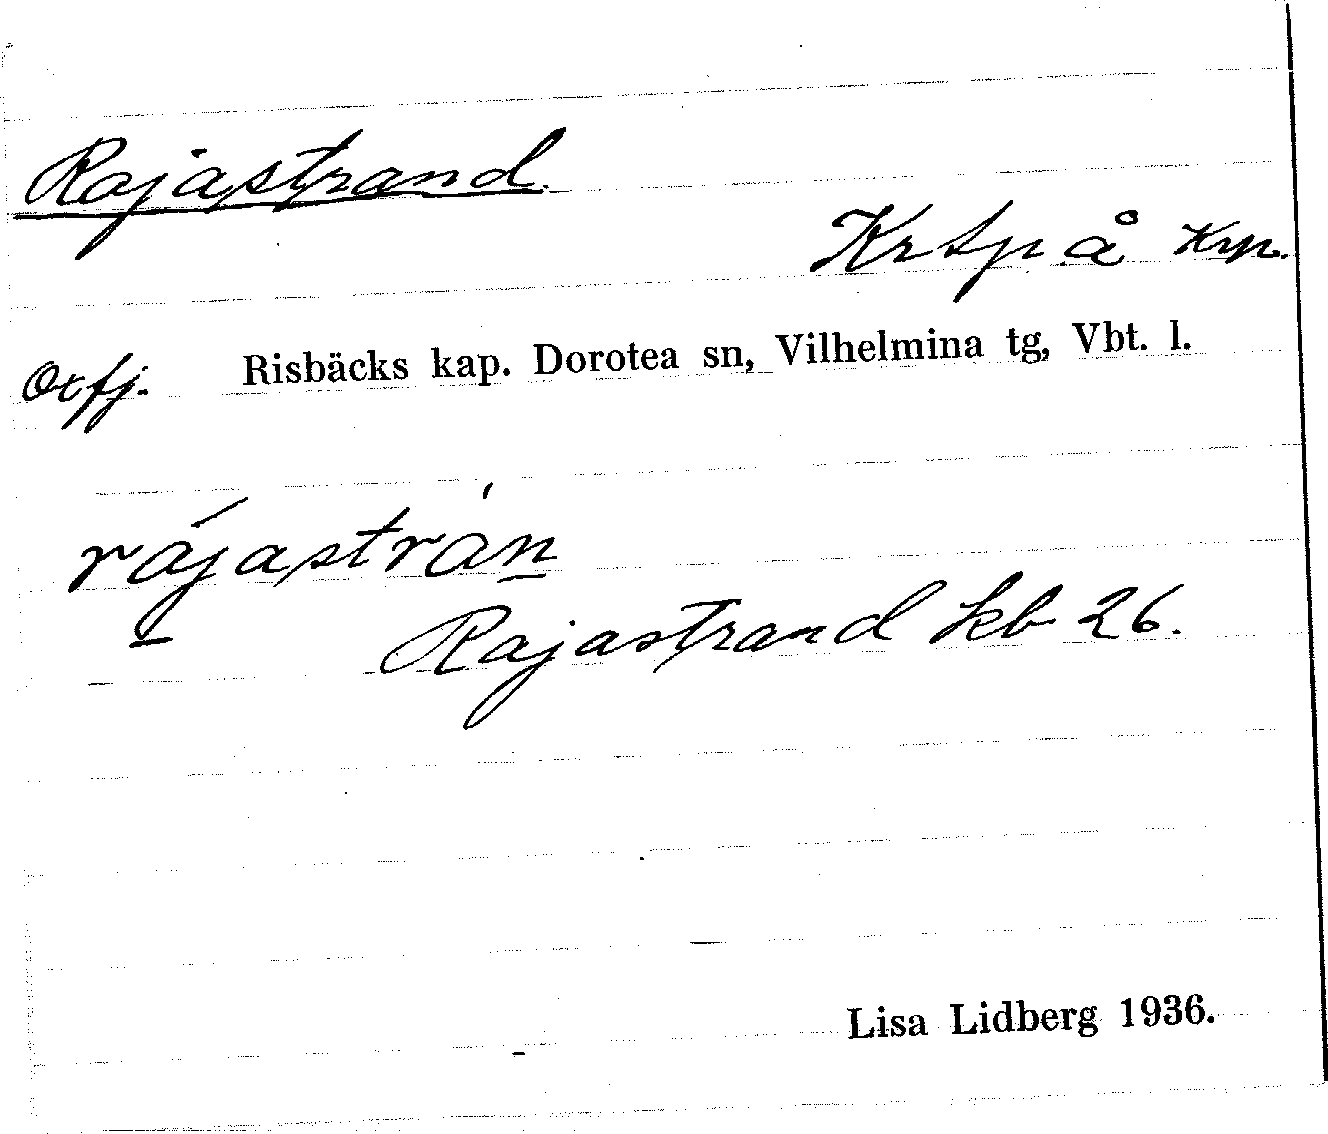 Rajastrand
Krtp å Krp.
Otfj. Risbäcks kap. Dorotea sn, Vilhelmina tg, Vbt. l.
rájastràn
Rajastrand kb 26.
Lisa Lidberg 1936.